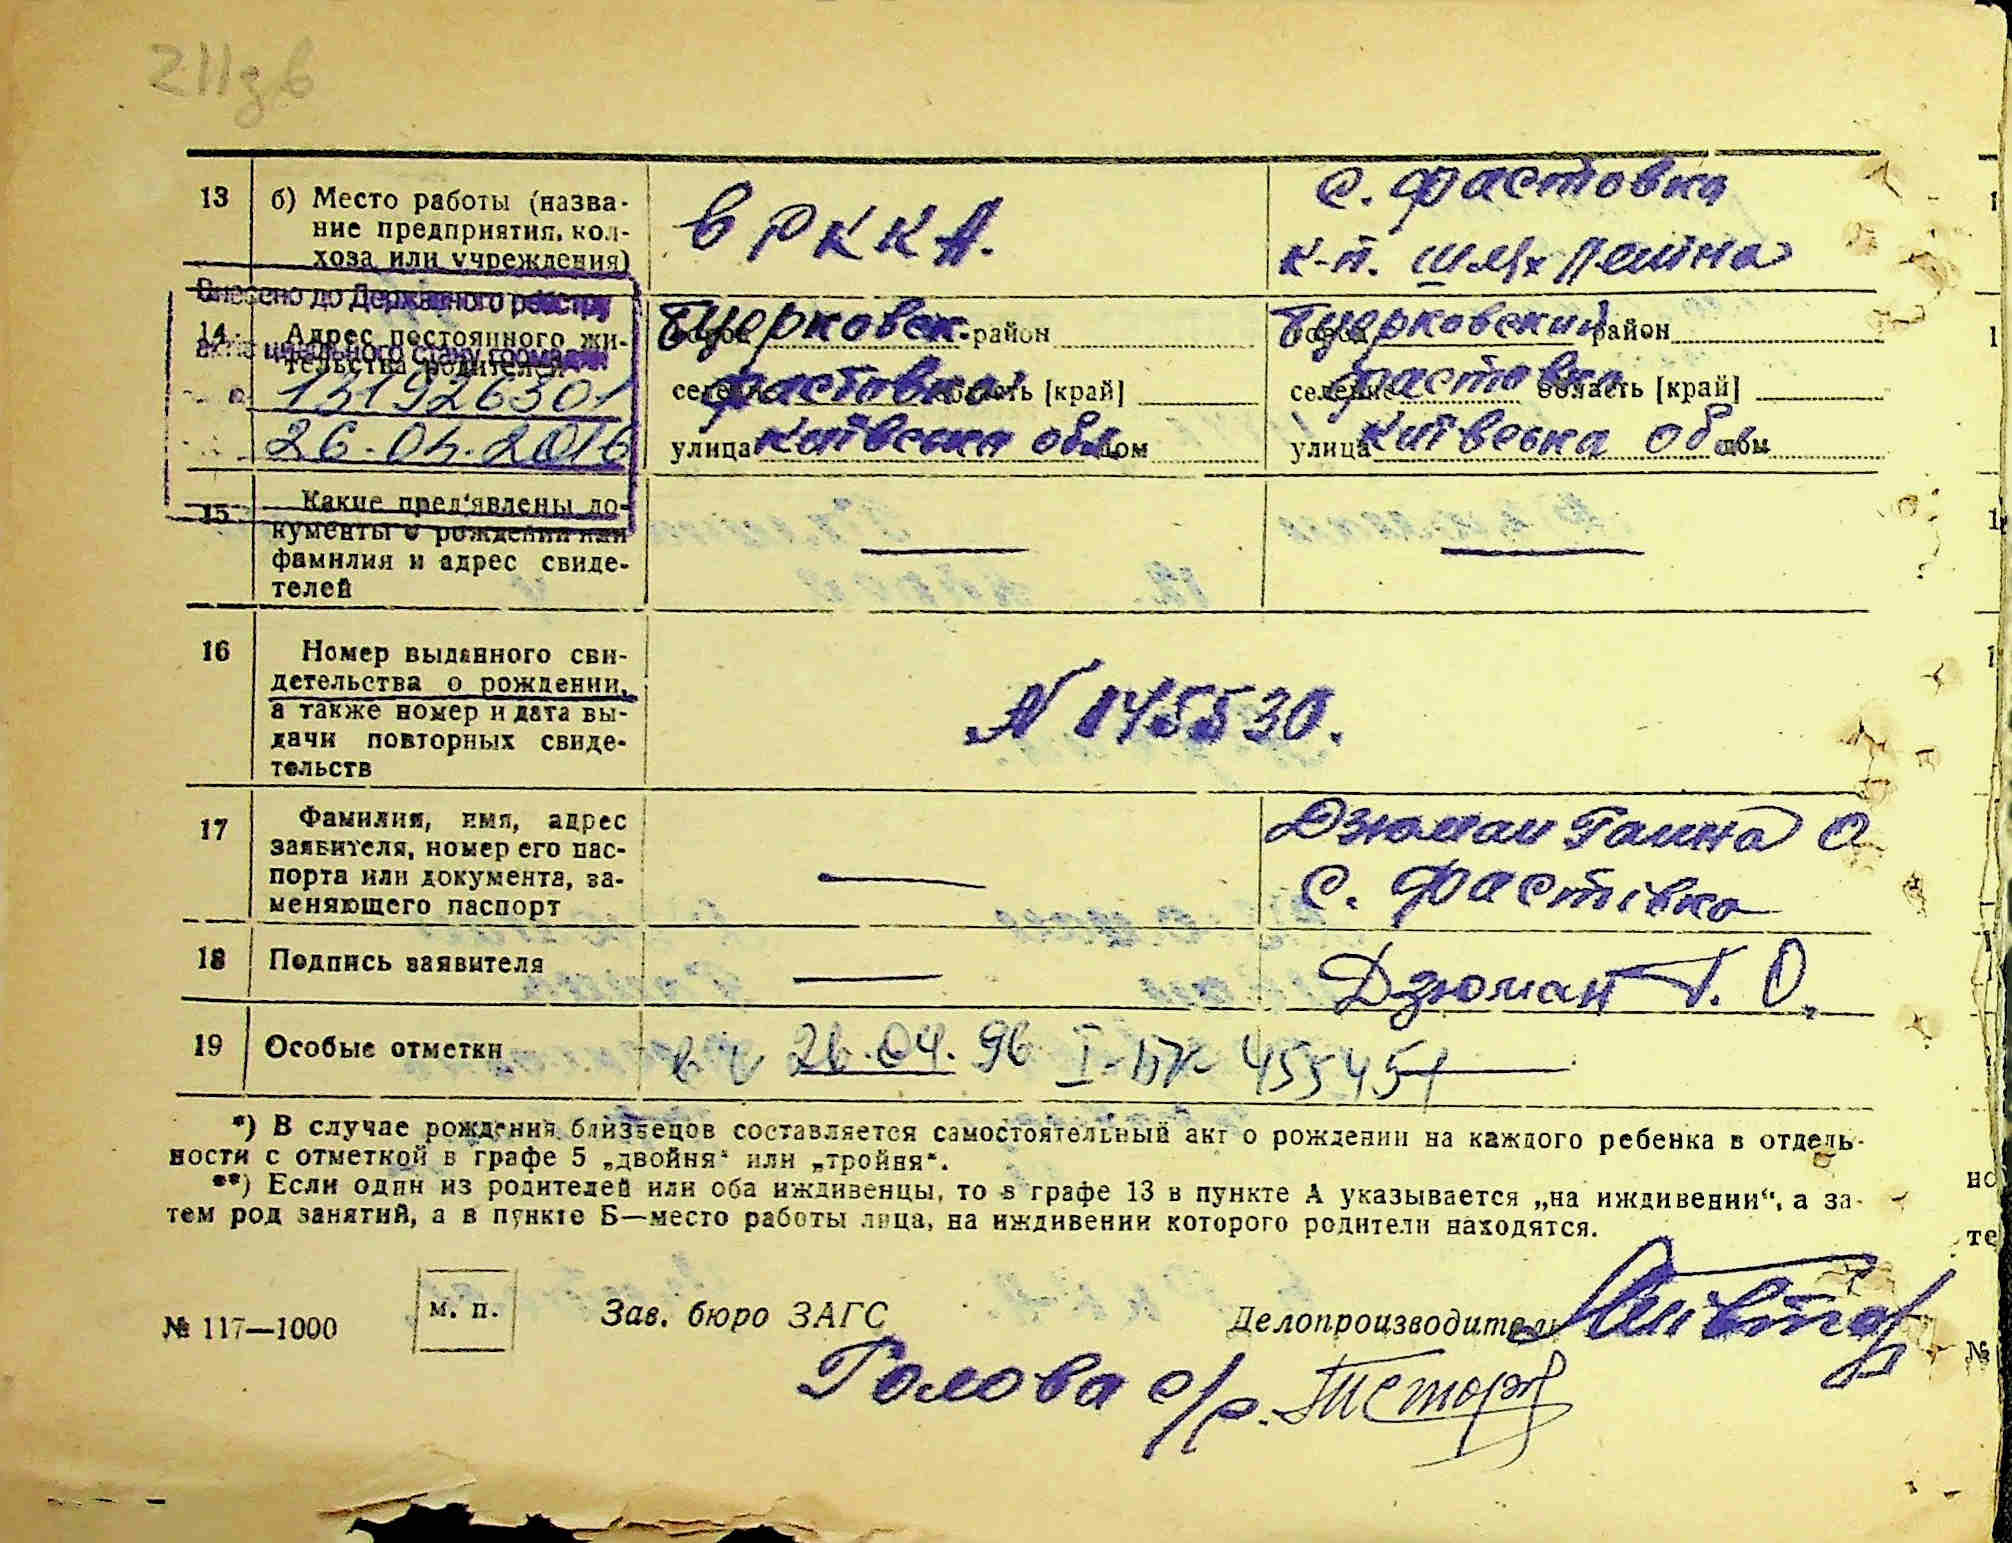 211зв
13 б) Место работы (назва-
ние предприятия, кол-
хоза или учреждения)
в РККА.
с. Фастовка
к-п. шлях Леніна
Внесено до Державного реєстру
14 Адрес постоянного жи-
тельства родителей
Бцерковск. район
селение Фастовка область [край]
улица Київська обл. дом
Бцерковский район
селение Фастовка область [край]
улица Київська обл. дом
актів цивільного стану громадян
131926301
26.04.2016
15 Какие пред'явлены до-
кументы о рождении или
фамилия и адрес свиде-
телей
16 Номер выданного сви-
детельства о рождении,
а также номер и дата вы-
дачи повторных свиде-
тельств
N 145530.
17 Фамилия, имя, адрес
заявителя, номер его пас-
порта или документа, за-
меняющего паспорт
Дзюман Ганна О
с. Фастівка
18 Подпись заявителя
Дзюман Г. О.
19 Особые отметки
26.04.96 I-БК 455451
*) В случае рождения близнецов составляется самостоятельный акт о рождении на каждого ребенка в отдель-
ности с отметкой в графе 5 „двойня“ или „тройня“.
**) Если один из родителей или оба иждивенцы, то в графе 13 в пункте А указывается „на иждивении“, а за-
тем род занятий, а в пункте Б—место работы лица, на иждивении которого родители находятся.
№ 117—1000
м. п.
Зав. бюро ЗАГС
Делопроизводитель
Голова с/р.